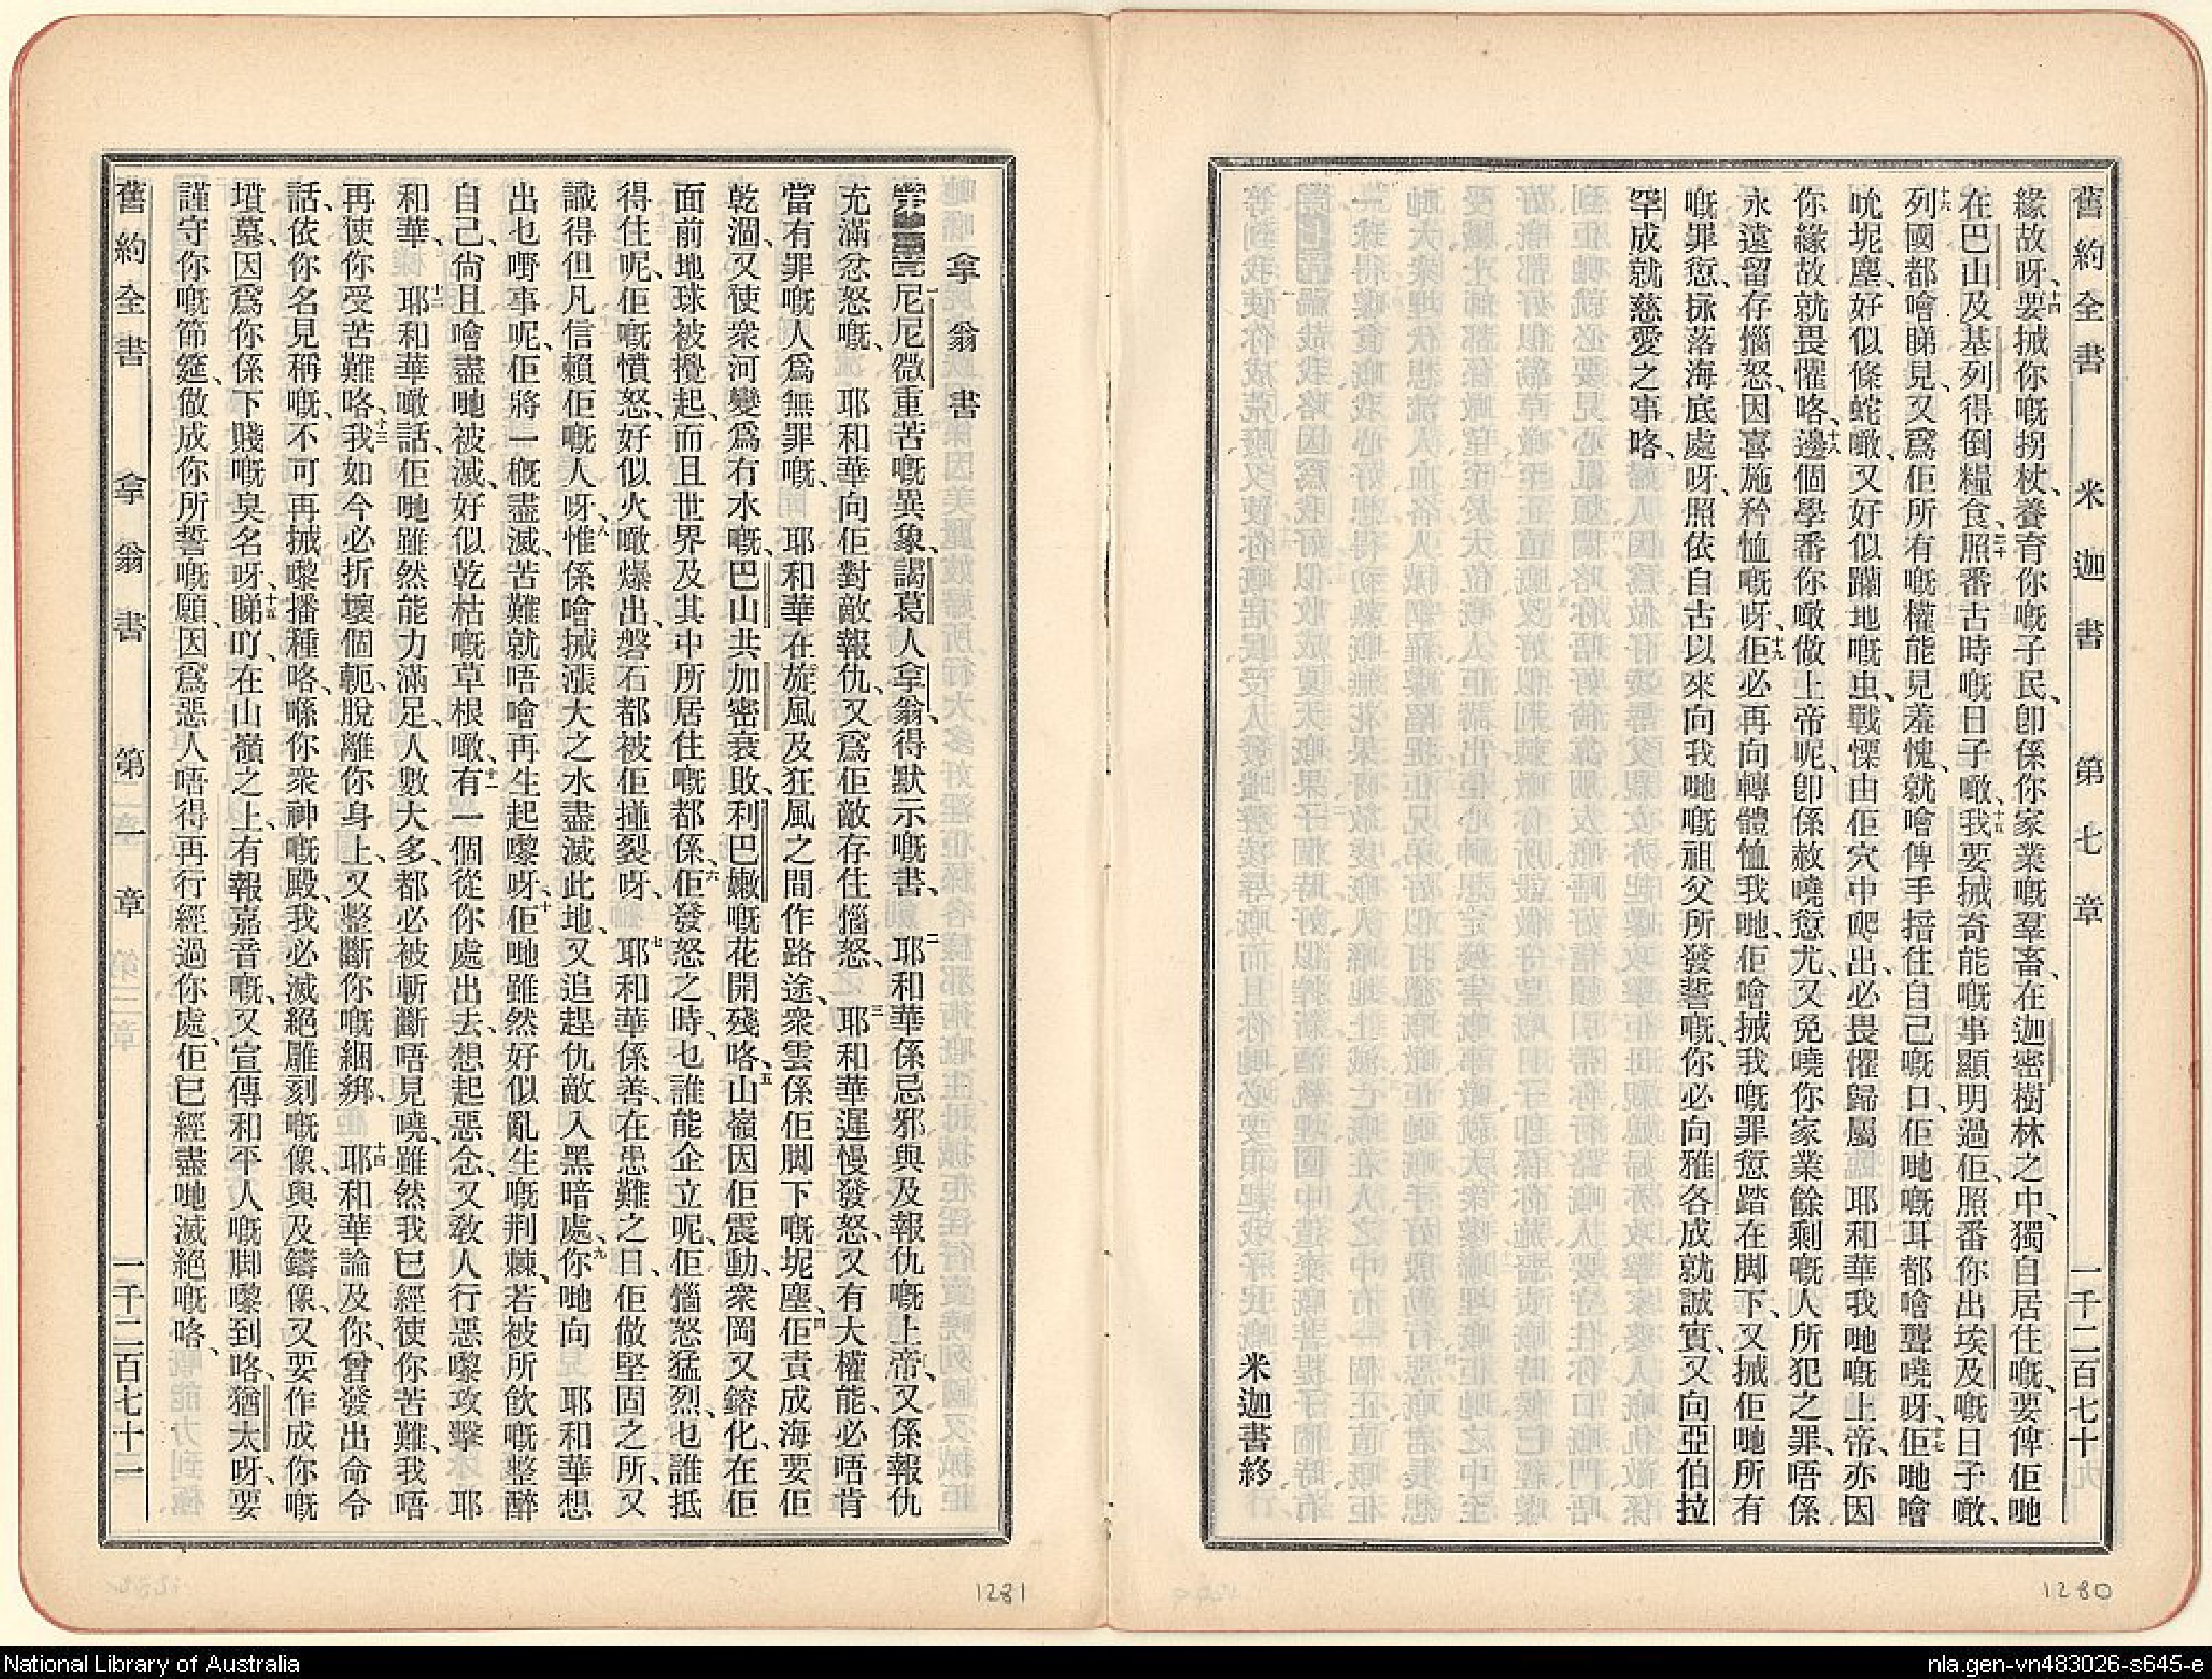 舊約全書 米迦書 第七章 一千二百七十
緣故呀、十四要搣你嘅拐杖、養育你嘅子民、卽係你家業嘅羣畜、在迦密樹林之中、獨自居住嘅、要俾佢哋
在巴山及基列得倒糧食、照番古時嘅日子噉、十五我要搣奇能嘅事顯明過佢、照番你出埃及嘅日子噉、
十六列國都噲睇見、又爲佢所有嘅權能見羞愧、就噲俾手揞住自己嘅口、佢哋嘅耳都噲聾嘵呀、十七佢哋噲
吮坭塵、好似條蛇噉、又好似躝地嘅虫、戰慄由佢穴中爬出、必畏懼歸屬 耶和華我哋嘅上帝、亦因
你緣故就畏懼咯、十八邊個學番你噉做上帝呢、卽係赦嘵愆尤、又免嘵你家業餘剩嘅人所犯之罪、唔係
永遠留存惱怒、因喜施矜恤嘅呀、十九佢必再向轉體恤我哋、佢噲搣我嘅罪愆踏在脚下、又搣佢哋所有
嘅罪愆、抁落海底處呀、二十照依自古以來向我哋嘅祖父所發誓嘅、你必向雅各成就誠實、又向亞伯拉
罕成就慈愛之事咯、
米迦書終
拿翁書
第一章 一尼尼微重苦嘅異象、謁葛人拿翁、得默示嘅書、 二耶和華係忌邪與及報仇嘅上帝、又係報仇
充滿忿怒嘅、 耶和華向佢對敵報仇、又爲佢敵存住惱怒、 三耶和華遲慢發怒、又有大權能、必唔肯
當有罪嘅人爲無罪嘅、 耶和華在旋風及狂風之間作路途、衆雲係佢脚下嘅坭塵、四佢責成海要佢
乾涸、又使衆河變爲冇水嘅、巴山共加密衰敗、利巴嫩嘅花開殘咯、五山嶺因佢震動、衆岡又鎔化、在佢
面前地球被攪起、而且世界及其中所居住嘅都係、六佢發怒之時、乜誰能企立呢、佢惱怒猛烈、乜誰抵
得住呢、佢嘅憤怒、好似火噉爆出、磐石都被佢撞裂呀、 七耶和華係善、在患難之日、佢做堅固之所、又
識得但凡信賴佢嘅人呀、八惟係噲搣漲大之水盡滅此地、又追趕仇敵入黑暗處、九你哋向 耶和華想
出乜嘢事呢、佢將一概盡滅、苦難就唔噲再生起嚟呀、十佢哋雖然好似亂生嘅荆棘、若被所飲嘅整醉
自己、尙且噲盡哋被滅、好似乾枯嘅草根噉、十一有一個從你處出去、想起惡念、又敎人行惡嚟攻擊 耶
和華、 十二耶和華噉話、佢哋雖然能力滿足、人數大多、都必被斬斷唔見嘵、雖然我已經使你苦難、我唔
再使你受苦難咯、十三我如今必折壞個軛、脫離你身上、又整斷你嘅綑綁、 十四耶和華論及你、曾發出命令
話、依你名見稱嘅、不可再搣嚟播種咯、喺你衆神嘅殿、我必滅絕雕刻嘅像、與及鑄像、又要作成你嘅
墳墓、因爲你係下賤嘅臭名呀、十五睇吖、在山嶺之上、有報嘉音嘅、又宣傳和平人嘅脚嚟到咯、猶太呀、要
謹守你嘅節筵、做成你所誓嘅願、因爲惡人唔得再行經過你處、佢已經盡哋滅絕嘅咯、
舊約全書 拿翁書 第一章 一千二百七十一
1281
1280
National Library of Australia
nla.gen-vn483026-s645-e